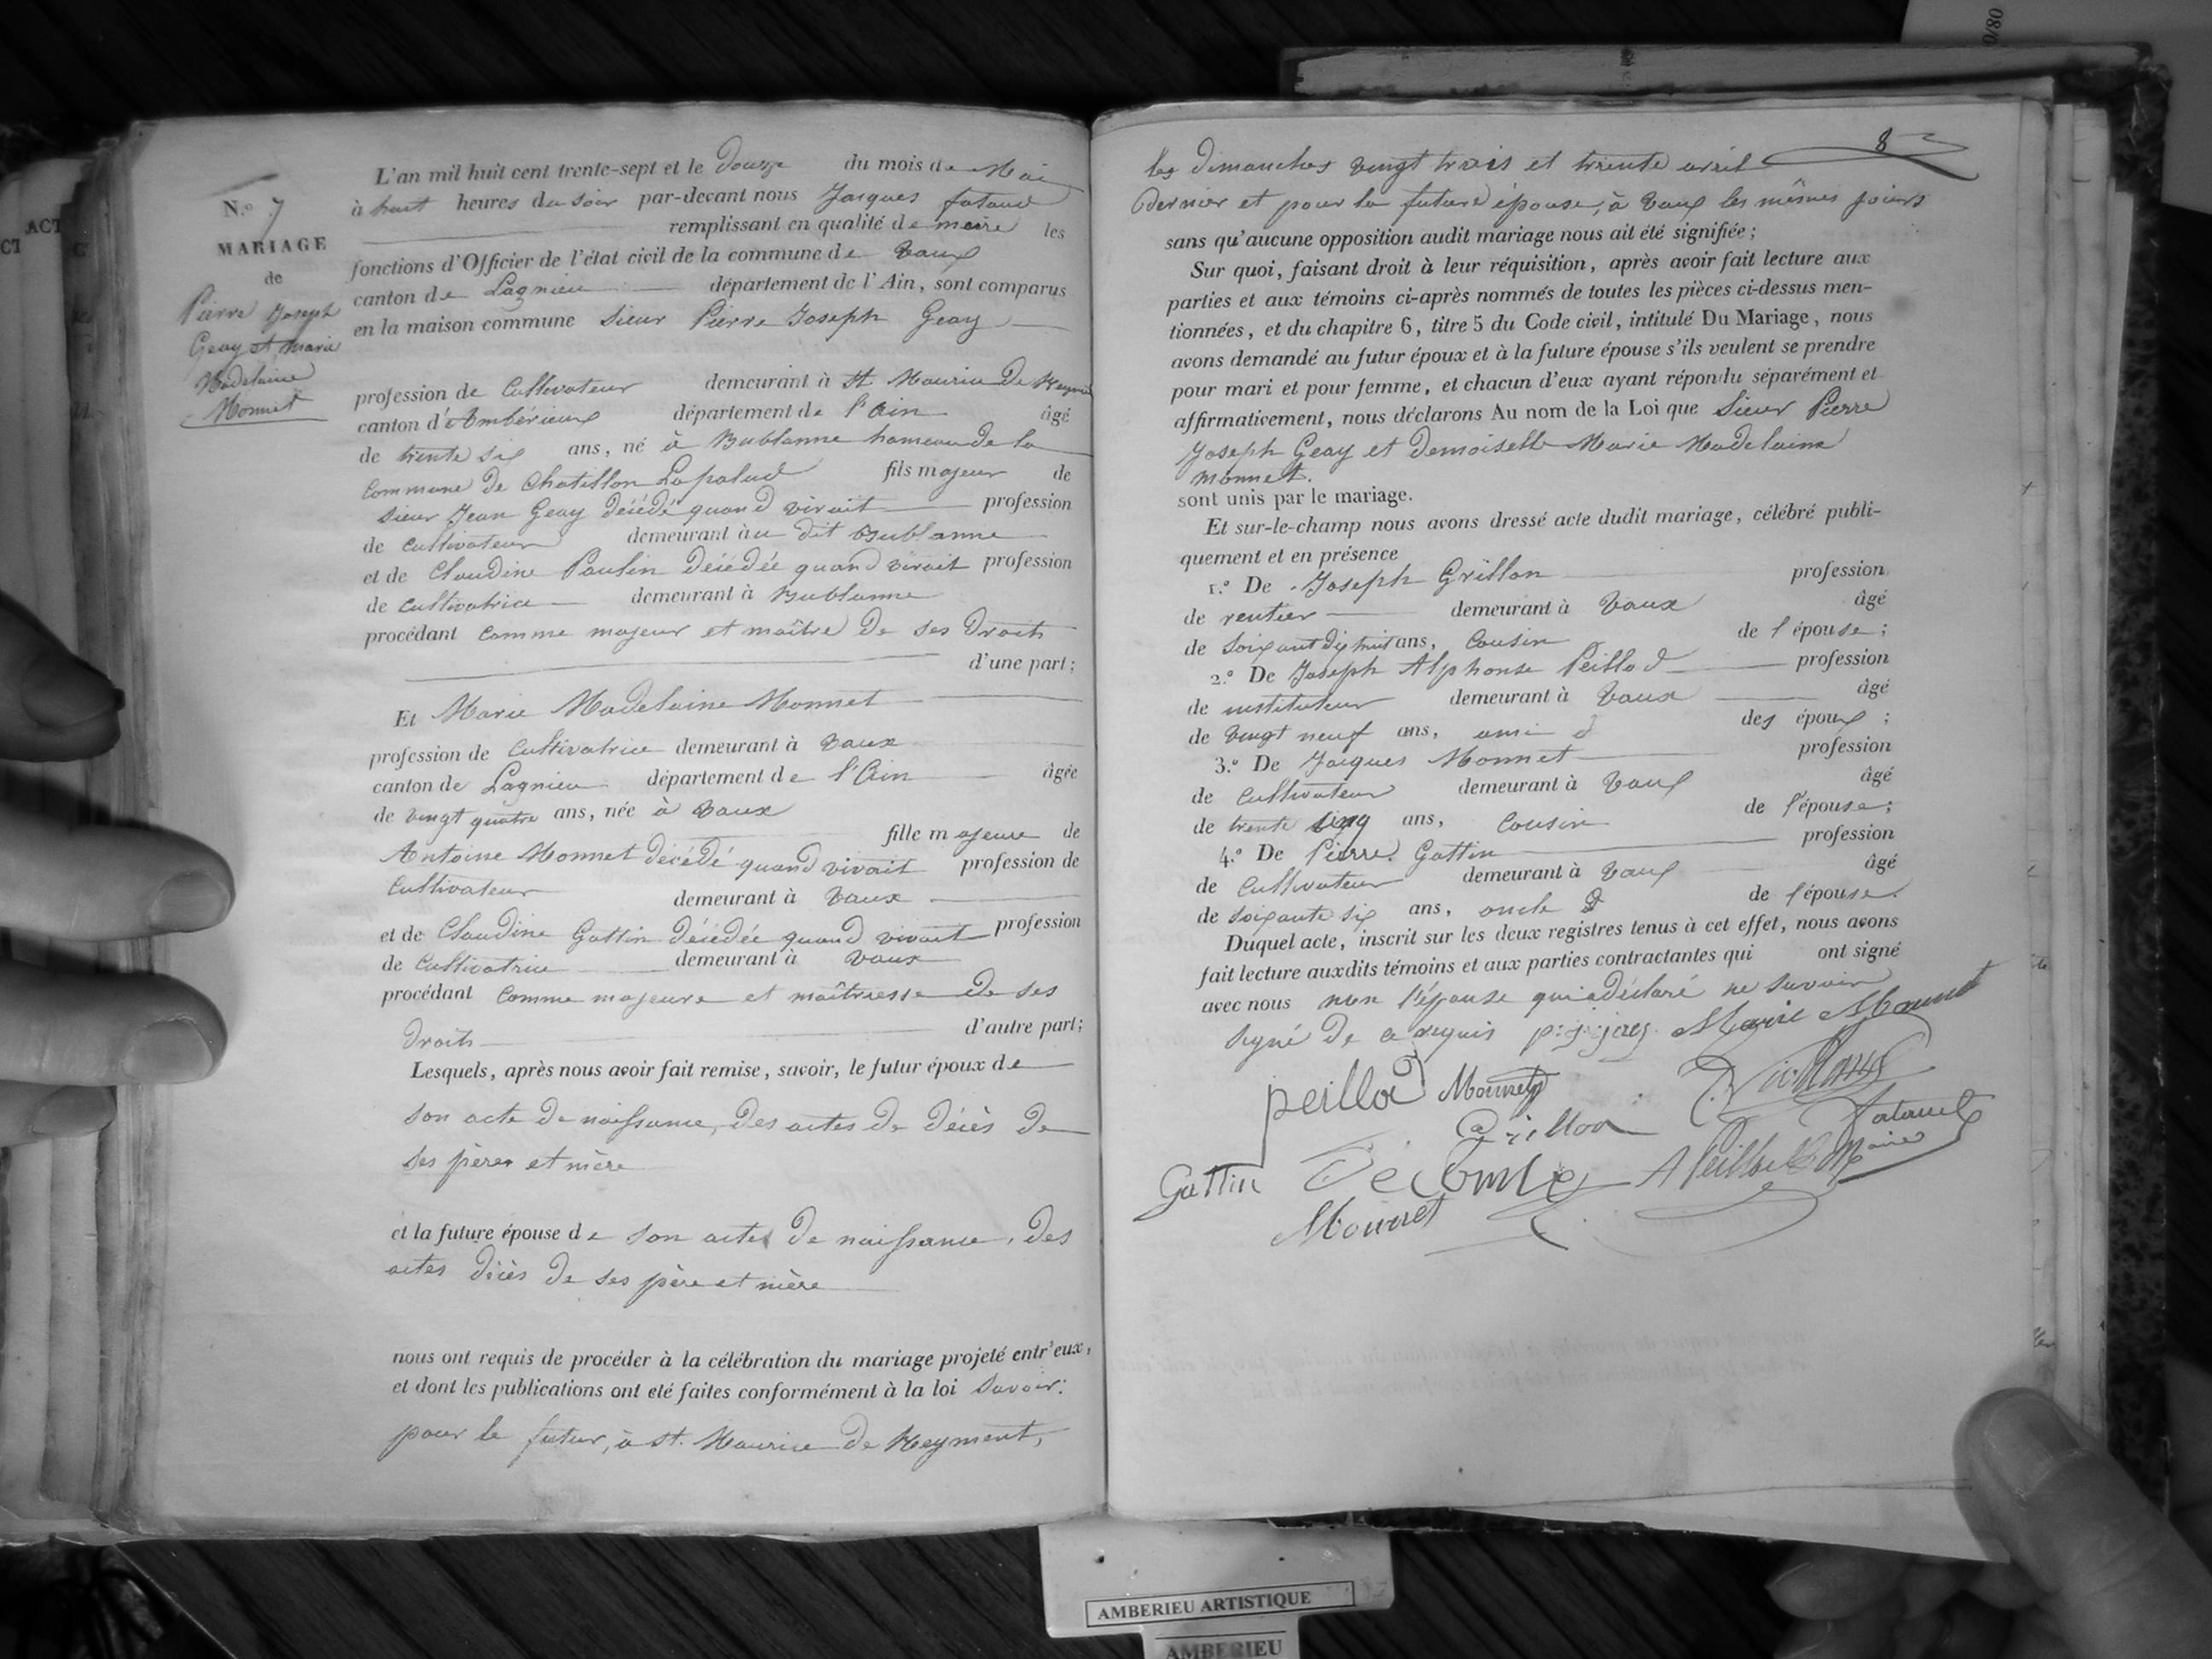 N.º 7
MARIAGE
de
Pierre Joseph
Geay et Marie
Madelaine
Monnet
L'an mil huit cent trente-sept et le douze du mois de Mai
à huit heures du soir par-devant nous Jacques fatanel
remplissant en qualité de maire les
fonctions d'Officier de l'état civil de la commune de Vaux
canton de Lagnieu département de l'Ain, sont comparus
en la maison commune Sieur Pierre Joseph Geay
profession de Cultivateur demeurant à St Maurice De
canton d'Ambérieux département de l'Ain âgé
de trente six ans, né à Bublanne hameau de la
Commune de Chatillon Lapalud fils majeur de
Sieur Jean Geay décédé quand vivait profession
de Cultivateur demeurant au dit Bublanne
et de Claudine Paulin décédée quand vivait profession
de Cultivatrice demeurant à Bublanne
procédant comme majeur et maître de ses Droits
d'une part;
Et Marie Madelaine Monnet
profession de Cultivatrice demeurant à Vaux
canton de Lagnieu département de l'Ain âgée
de vingt quatre ans, née à Vaux
fille majeure de
Antoine Monnet décédé quand vivait profession de
Cultivateur demeurant à Vaux
et de Claudine Gattin décédée quand vivait profession
de Cultivatrice demeurant à Vaux
procédant Comme majeure et maîtresse de ses
Droits d'autre part;
Lesquels, après nous avoir fait remise, savoir, le futur époux de
son acte de naissance, des actes de décès de
ses pères et mère
et la future épouse de son actes de naissance, des
actes décès de ses père et mère
nous ont requis de procéder à la célébration du mariage projeté entr'eux,
et dont les publications ont été faites conformément à la loi Savoir:
pour le futur, à St. Maurice de Reyment,
8
les dimanches vingt trois et trente avril
dernier et pour la future épouse, à Vaux les mêmes jours
sans qu'aucune opposition audit mariage nous ait été signifiée;
Sur quoi, faisant droit à leur réquisition, après avoir fait lecture aux
parties et aux témoins ci-après nommés de toutes les pièces ci-dessus men-
tionnées, et du chapitre 6, titre 5 du Code civil, intitulé Du Mariage, nous
avons demandé au futur époux et à la future épouse s'ils veulent se prendre
pour mari et pour femme, et chacun d'eux ayant répondu séparément et
affirmativement, nous déclarons Au nom de la Loi que Sieur Pierre
Joseph Geay et Demoiselle Marie Madelaine
Monnet.
sont unis par le mariage.
Et sur-le-champ nous avons dressé acte dudit mariage, célébré publi-
quement et en présence
1.º De Joseph Grillon profession
de rentier demeurant à Vaux âgé
de soixant dix huit ans, Cousin de l'épouse;
2.º De Joseph Alphonse Peillod profession
de instituteur demeurant à Vaux âgé
de vingt neuf ans, ami d des époux;
3.º De Jacques Monnet profession
de Cultivateur demeurant à Vaux âgé
de trente cinq ans, Cousin de l'épouse;
4.º De Pierre Gattin profession
de Cultivateur demeurant à Vaux âgé
de soixante six ans, oncle de l'épouse.
Duquel acte, inscrit sur les deux registres tenus à cet effet, nous avons
fait lecture auxdits témoins et aux parties contractantes qui ont signé
avec nous non l'épouse qui a déclaré ne savoir
signé de ce requis Marie Monnet
Peillod Monnet
Grillon fatanel
Gattin Decomble A Peillod Maire
Monnet
AMBERIEU ARTISTIQUE
AMBERIEU